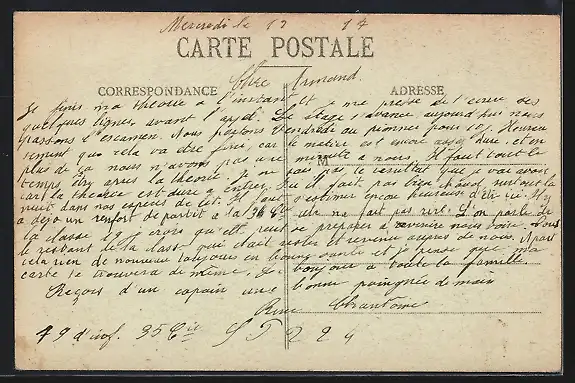 Mercredi le 13 17
CARTE POSTALE
CORRESPONDANCE
ADRESSE
Cher Armand
Je finis ma théorie à l'instant et je me presse de t'écrire ces
quelques lignes avant l'appel. Le stage s'avance, aujourd'hui nous
passons l'examen. Nous partons Vendredi au pionnier pour 10 j. Heureu
sement que cela va être fini, car le métier est encore assez dure, et en
plus de ça nous n'avons pas une minute a nous. Il faut tout le
temps être après la théorie. Je ne sais pas le résultat que je vai avoir
car la théorie est dure a entrer. Ou il fait pas bien chaud, surtout la
nuit dans nos espèces de lit. Il faut s'estimer encore heureux d'être ici. Il y
a déjo un renfort de partit a la 36 Cie cela ne fait pas rire. L'on parle de
la classe 19 je crois qu'elle peut se préparer à nous voir.
le restant de la class qui était restes et revenu aupres de nous. A part
cela rien de nouveau toujours en bonne santé et je pense que ma
carte te trouvera de même. Le bonjour a toute la famille.
Reçois d'un copain une bonne poignée de main
Chrantome
79 d'inf. 35 Cie S P 224